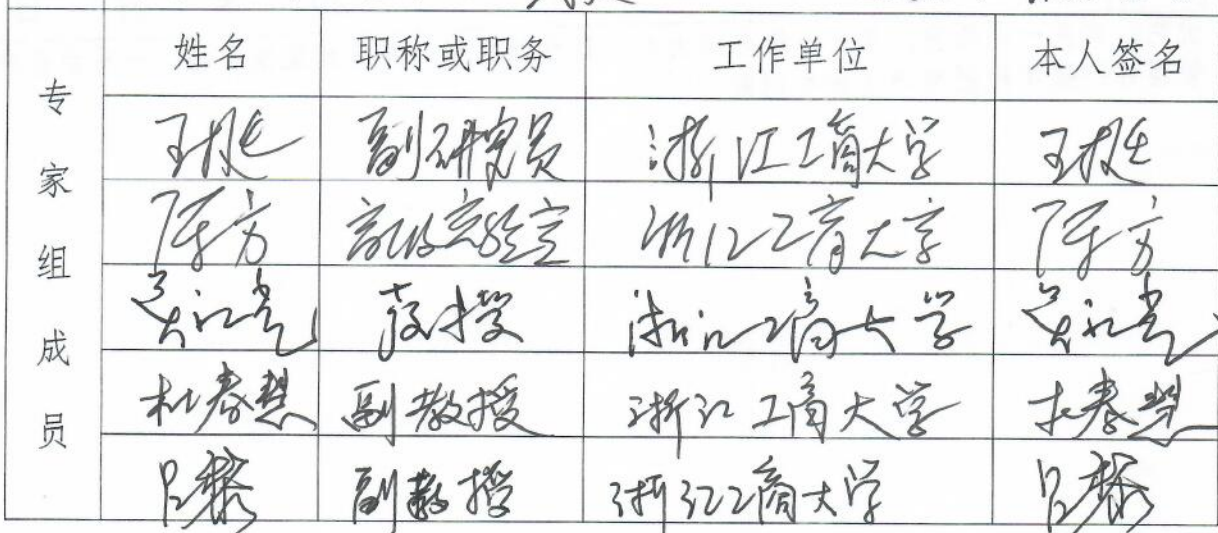 姓名 职称或职务 工作单位 本人签名
专家组成员
王挺 副研究员 浙江工商大学 王挺
陈方 高级实验室 浙江工商大学 陈方
教授 浙江工商大学
杜春慧 副教授 浙江工商大学 杜春慧
吕黎 副教授 浙江工商大学 吕黎